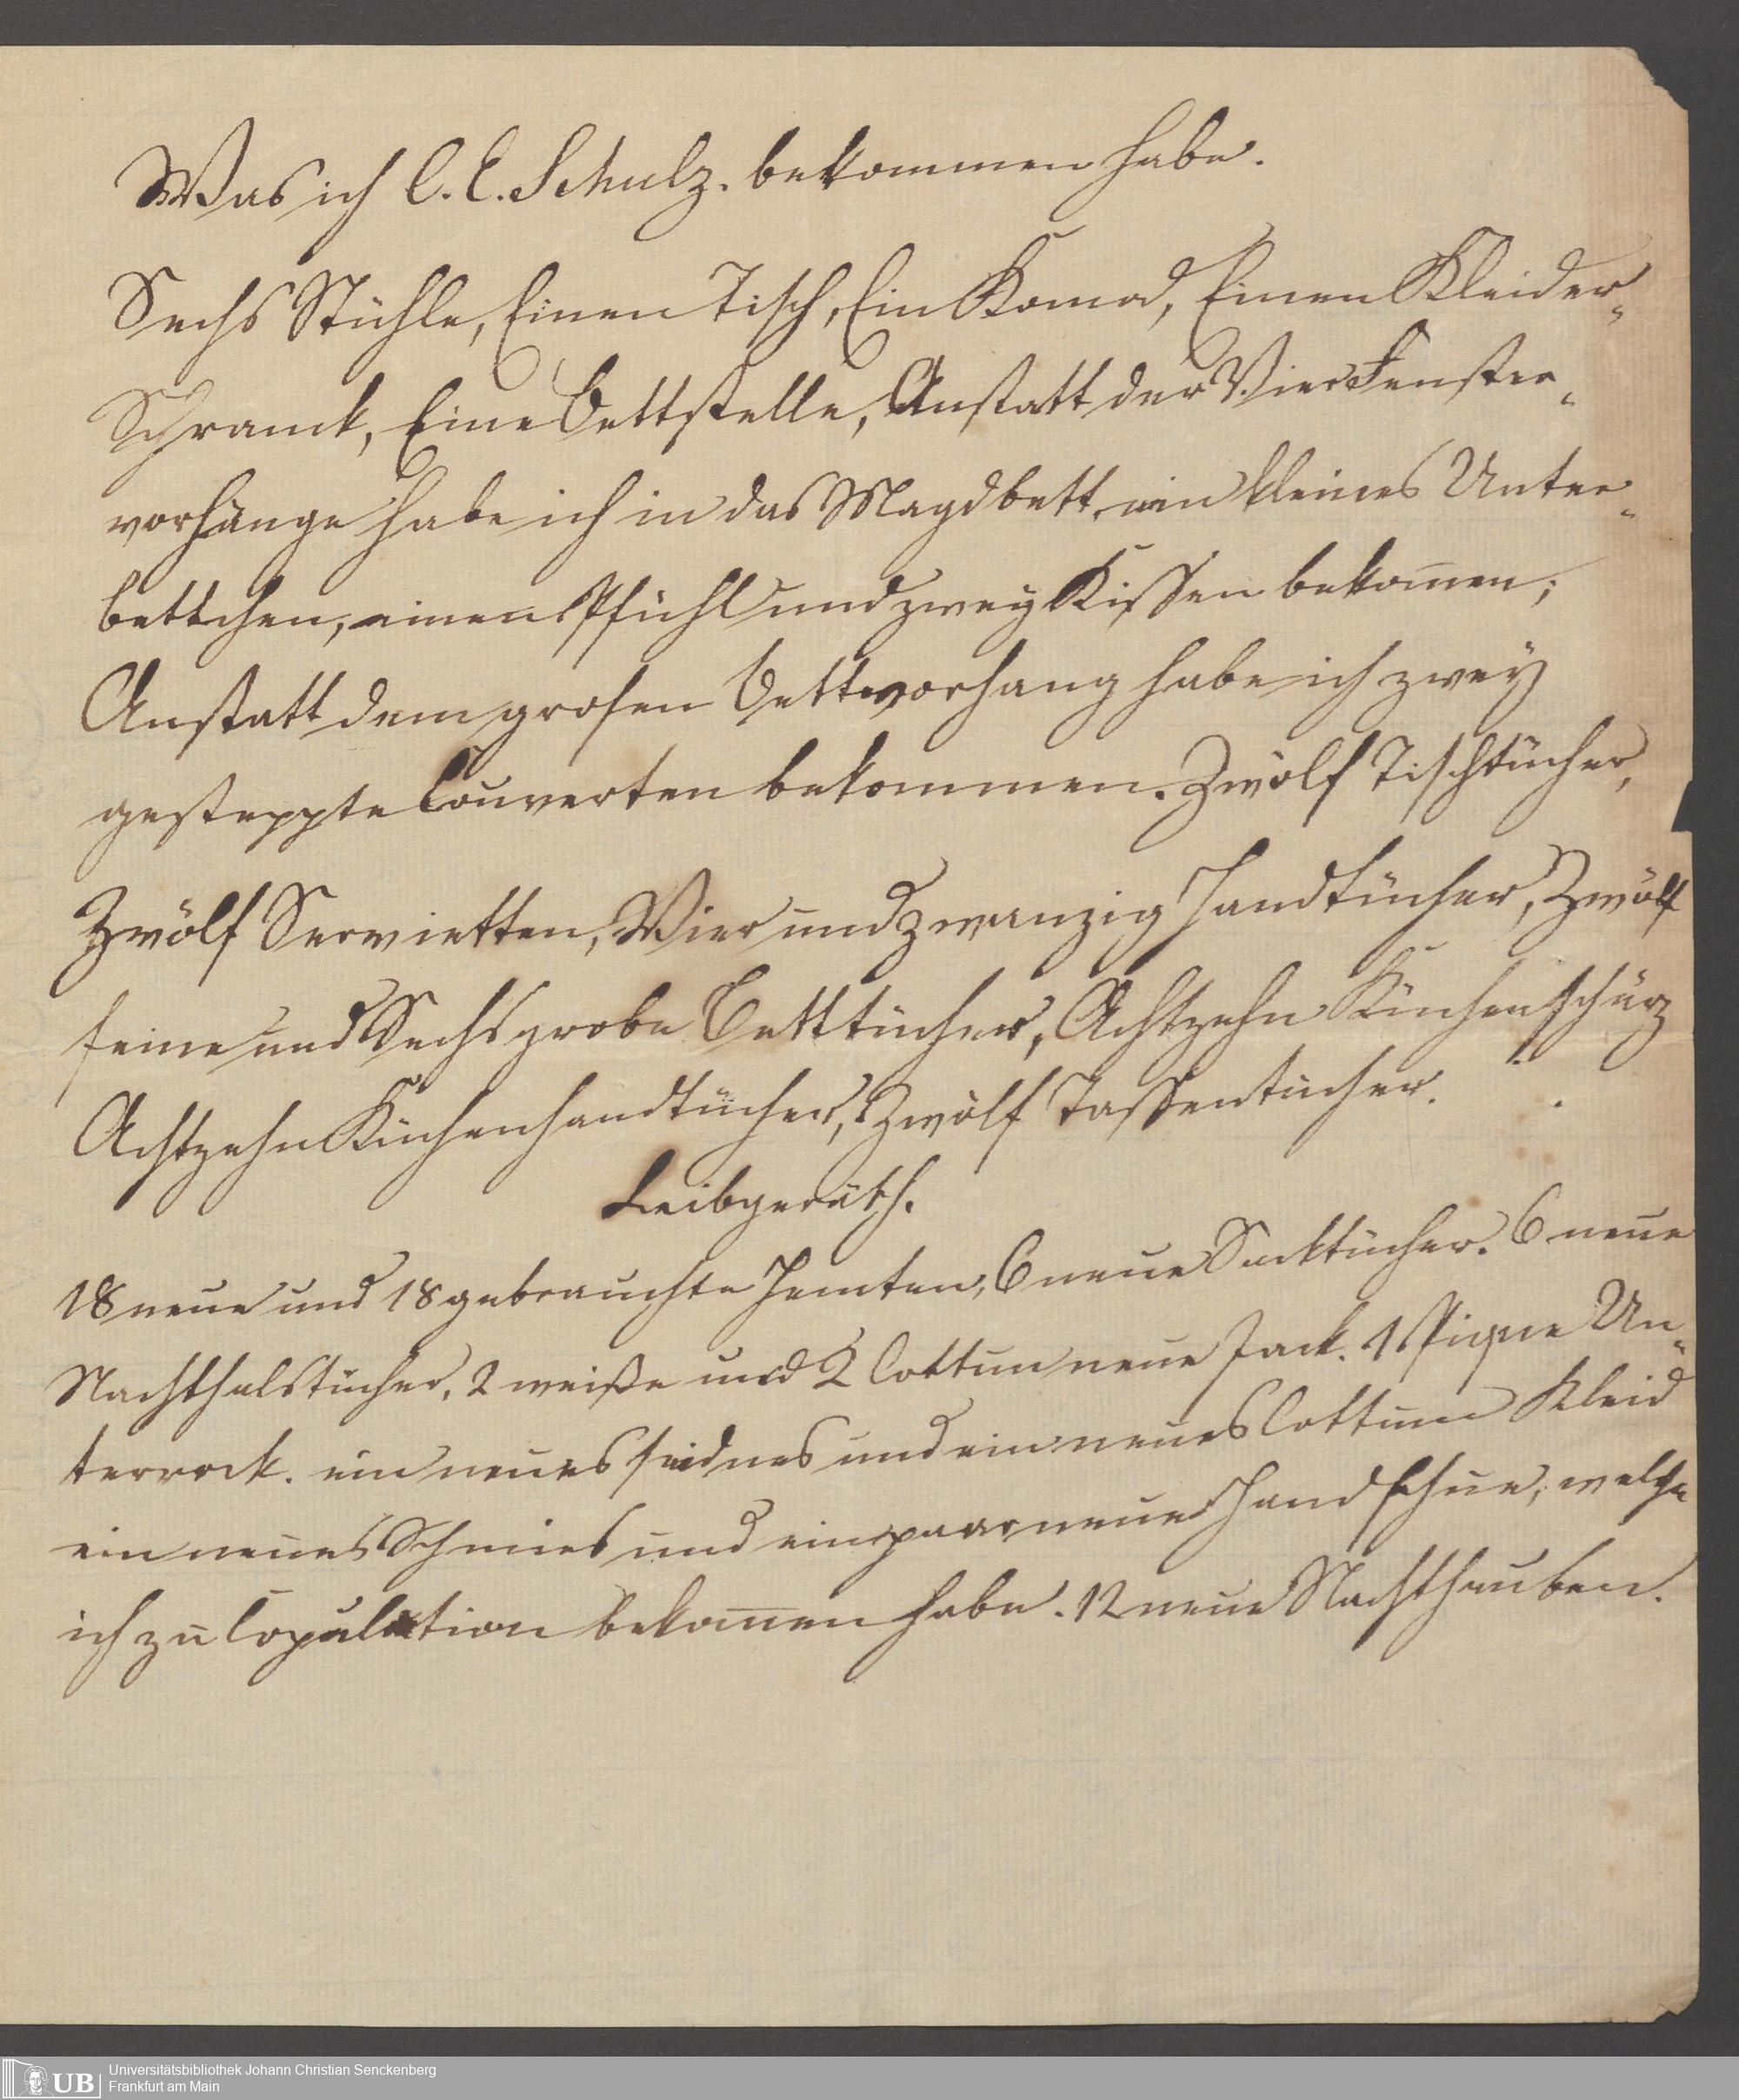 Was ich C. E. Schulz. bekommen habe.
Sechs Stühle, Einen Tisch, Ein Komod, Einen Kleider-
Schranck, Eine Bettstelle, Anstatt der Vier Fenster-
vorhänge habe ich in das Magdbett, ein kleines Unter-
bettchen, einen Pfühl und zwey Kissen bekom̄en;
Anstatt dem grosen Bettvorhang habe ich zwey
gesteppte Couverten bekommen. Zwölf Tischtücher,
Zwölf Servietten, Vier und Zwanzig Handtücher, Zwölf
feine und Sechs grobe Betttücher, Achtzehn Küchenschürz
Achtzehn Küchenhandtücher, Zwölf Tassentücher.
Leibgeräth.
18 neue und 18 gebrauchte Hemten, 6 neue Sacktücher. 6 neue
Nachthalstücher, 2 weiße und 2 Cottun neue Jack. 1 Pique Un-
terrock. ein neues seidnes und ein neues Cottune Kleid
ein neues und ein paar neue Handschue, welche
ich zu Copulation bekom̄en habe. 12 neue Nachthauben.
UB Universitätsbibliothek Johann Christian Senckenberg
Frankfurt am Main